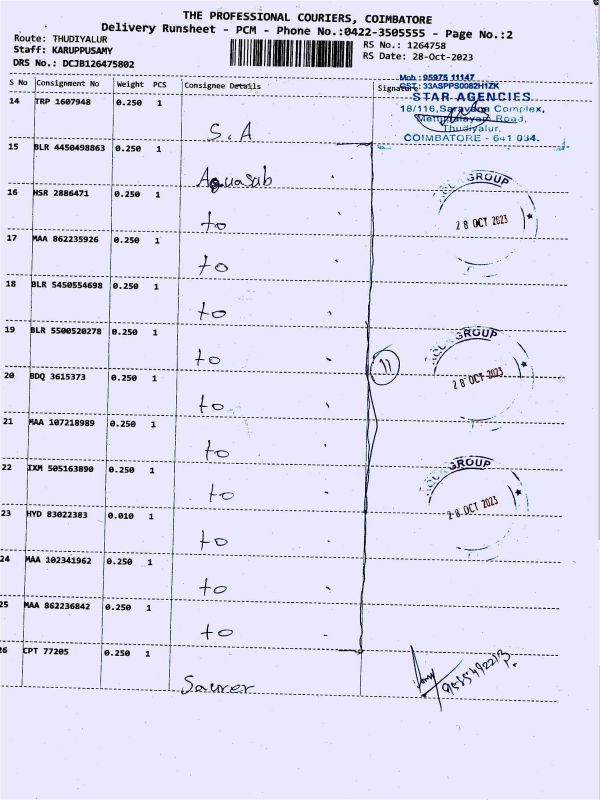 THE PROFESSIONAL COURIERS, COIMBATORE
Delivery Runsheet - PCM - Phone No.:0422-3505555 - Page No.:2
Route: THUDIYALUR
Staff: KARUPPUSAMY
DRS No.: DCJB126475802
RS No.: 1264758
RS Date: 28-Oct-2023
S No Consignment No Weight PCS Consignee Details Signature
Mob : 95975 11147
GST : 33ASPPS0082H1ZK
STAR AGENCIES
18/116, Saravana Complex,
Mettupalayam Road,
Thudiyalur,
COIMBATORE - 641 034.
14 TRP 1607948 0.250 1
S.A
15 BLR 4450498863 0.250 1
Aquasub
16 HSR 2886471 0.250 1
to
GROUP
28 OCT 2023
17 MAA 862235926 0.250 1
to
18 BLR 5450554698 0.250 1
to
19 BLR 5500520278 0.250 1
to
GROUP
28 OCT 2023
11
20 BDQ 3615373 0.250 1
to
21 MAA 107218989 0.250 1
to
22 IXM 505163890 0.250 1
to
GROUP
28 OCT 2023
23 HYD 83022383 0.010 1
to
24 MAA 102341962 0.250 1
to
25 MAA 862236842 0.250 1
to
26 CPT 77205 0.250 1
Saurer